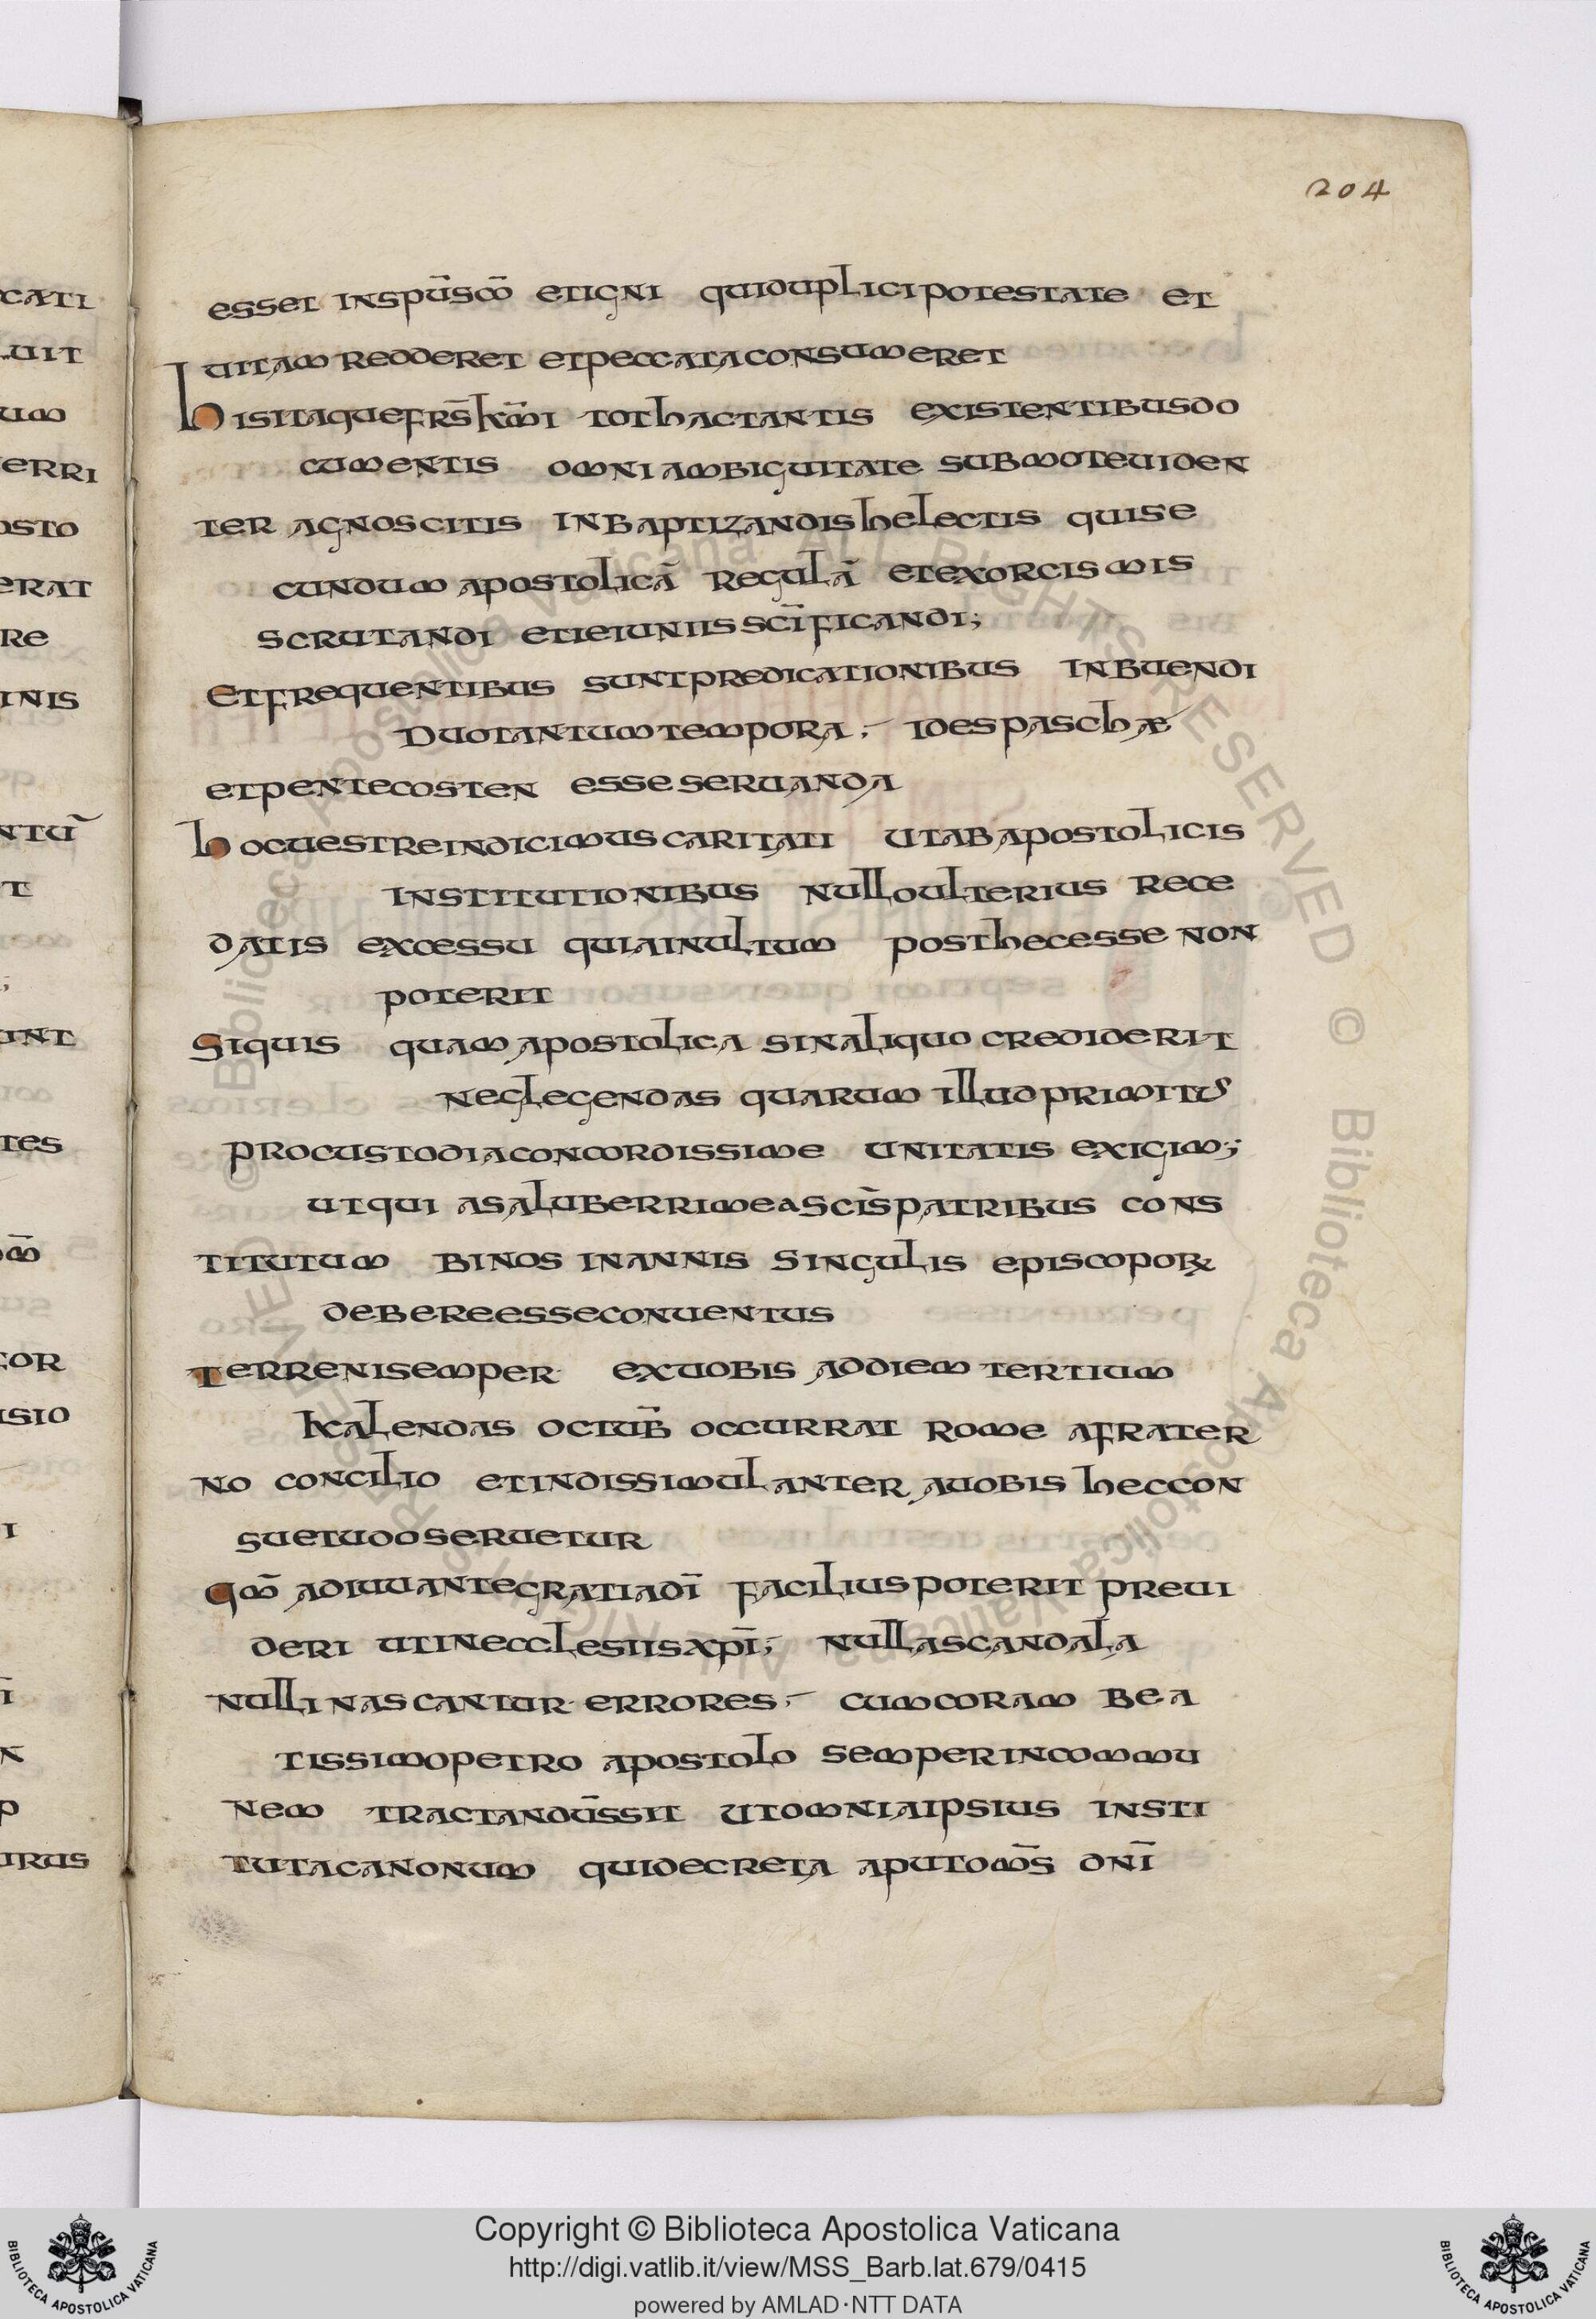 204
esset inspūscō etigni quiduplicipotestate et
uitam redderet etpeccataconsumeret
hisitaquefrs̄ km̄i tothactantis existentibusdo
cumentis omniambiguitate submoteuiden
ter agnoscitis inbaptizandishelectis quise
cundum apostolicā regulā etexorcismis
scrutandi etieiuniisscīficandi;
etfrequentibus suntpredicationibus inbuendi
duotantumtempora; idespaschæ
etpentecosten esseseruanda
hocuestreindicimuscaritati utabapostolicis
institutionibus nulloulterius rece
datis excessu quiainultum posthecesse non
poterit
siquis quamapostolica sinaliquo crediderit
neglegendas quarum illudprimitus
procustodiaconcordissime unitatis exigim;
utqui asaluberrimeascis̄patribus cons
titutum binos inannis singulis episcopoꝝ
debereesseconuentus
terrenisemper exuobis addiem tertium
kalendas octub̄ occurrat rome afrater
no concilio etindissimulanter auobis heccon
suetudoseruetur
qm̄ adiuuantegratiadī faciliuspoterit preui
deri utinecclesiisxpī; nullascandala
nullinascantur errores; cumcoram bea
tissimopetro apostolo semperincommu
nem tractandūssit utomniaipsius insti
tutacanonum quidecreta aputom̄s dnī
cati
uit
um
erri
osto
erat
re
inis
ntū
t
;
unt
tes
om̄
cor
isio
i
ī
n
p
urus
© Biblioteca Apostolica Vaticana ALL RIGHTS RESERVED © Biblioteca Apostolica Vaticana ALL RIGHTS RESERVED
Copyright © Biblioteca Apostolica Vaticana
http://digi.vatlib.it/view/MSS_Barb.lat.679/0415
powered by AMLAD·NTT DATA
BIBLIOTECA APOSTOLICA VATICANA
BIBLIOTECA APOSTOLICA VATICANA